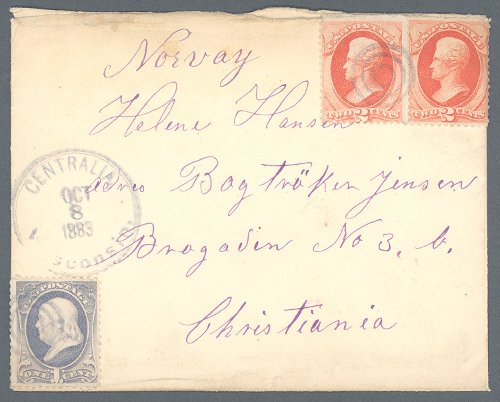 Norvay
Helene Hansen
adres Bogtröker Jensen
Brogaden No 3. b.
Christiania
CENTRALIA
OCT
8
1883
Wisconsin.
U.S. POSTAGE
TWO 2 CENTS
U.S. POSTAGE
TWO 2 CENTS
U.S. POSTAGE
ONE 1 CENT